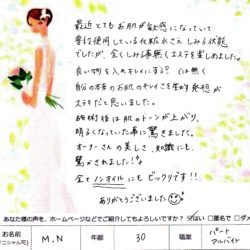 最近とてもお肌が敏感になっていて
普段使用している化粧水さえしみる状態
でしたが、全くしみる事無くエステを楽しめました。
良い物を入れキレイにする?では無く
自分の本来のお肌のキレイさを生む発想が
ステキだと思いました。
施術後は肌のトーンが上がり、
明るくなっていた事に驚きました。
オーナーさんの美しさ、知識にも、
驚かされました!
全てノンオイルにもビックリです!!
ありがとうございました
あなた様の声を、ホームページなどでご紹介してもよろしいですか? はい □匿名で □ダ
お名前 M.N 年齢 30 職業 パート アルバイト
ニシャル可)